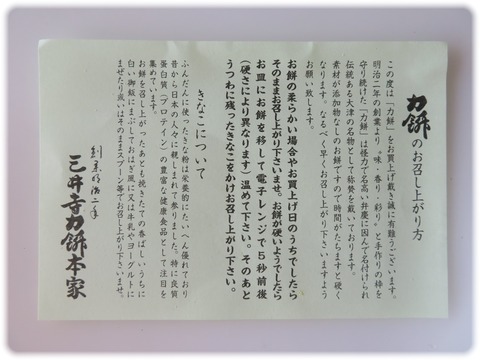 力餅のお召し上がり方
この度は「力餅」をお買上げ戴き誠に有難うございます。
明治二年の創業より〝味・香り・彩り〟と手作りの枠を
守り続けた「力餅」は怪力で名高い弁慶に因んで名付けられ
伝統ある大津の名物として称賛を戴いております。
素材が添加物なしのお餅ですので時間がたちますと硬く
なります。なるべく早くお召し上がり下さいますよう
お願い致します。
お餅の柔らかい場合やお買上げ日のうちでしたら
そのままお召し上がり下さいませ。お餅が硬いようでしたら
お皿にお餅を移して電子レンジで５秒前後
（硬さにより異なります）温めて下さい。そのあと
うつわに残ったきなこをかけお召し上がり下さい。
きなこについて
ふんだんに使ったきな粉は栄養的にたいへん優れており
昔から日本の人々に親しまれて参りました。特に良質
蛋白質（プロテイン）の豊富な健康食品として注目を
集めています。
お餅を召し上がったあとも挽きたての香ばしいうちに
白い御飯にまぶしておはぎ風に又は牛乳やヨーグルトに
まぜたり或いはそのままスプーン等でお召し上がり下さいませ。
創業明治二年
三井寺力餅本家